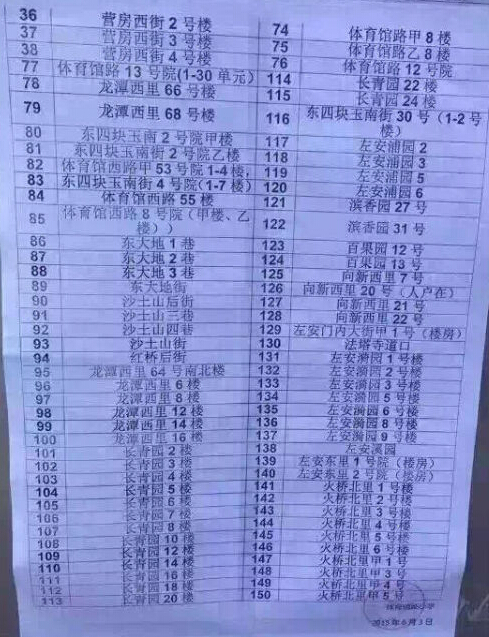 36 营房西街 2 号楼
37 营房西街 3 号楼
38 营房西街 4 号楼
77 体育馆路 13 号院(1-30 单元)
78 龙潭西里 66 号楼
79 龙潭西里 68 号楼
80 东四块玉南 2 号院甲楼
81 东四块玉南街 2 号院乙楼
82 体育馆西路甲 53 号院 1-4 楼,
83 东四块玉南街 4 号院(1-7 楼)
84 体育馆西路 55 楼
85 体育馆西路 8 号院(甲楼、乙
楼))
86 东大地 1 巷
87 东大地 2 巷
88 东大地 3 巷
89 东大地街
90 沙土山后街
91 沙土山三巷
92 沙土山四巷
93 沙土山街
94 红桥后街
95 龙潭西里 64 号南北楼
96 龙潭西里 6 楼
97 龙潭西里 8 楼
98 龙潭西里 12 楼
99 龙潭西里 14 楼
100 龙潭西里 16 楼
101 长青园 2 楼
102 长青园 3 楼
103 长青园 4 楼
104 长青园 5 楼
105 长青园 6 楼
106 长青园 7 楼
107 长青园 8 楼
108 长青园 10 楼
109 长青园 12 楼
110 长青园 14 楼
111 长青园 16 楼
112 长青园 18 楼
113 长青园 20 楼
74 体育馆路甲 8 楼
75 体育馆路乙 8 楼
76 体育馆路 12 号院
114 长青园 22 楼
115 长青园 24 楼
116 东四块玉南街 30 号(1-2 号
楼)
117 左安浦园 2
118 左安浦园 3
119 左安浦园 5
120 左安浦园 6
121 滨香园 27 号
122 滨香园 31 号
123 百果园 12 号
124 百果园 13 号
125 向新西里 7 号
126 向新西里 20 号(人户在)
127 向新西里 21 号
128 向新西里 22 号
129 左安门内大街甲 1 号(楼房)
130 法塔寺道口
131 左安漪园 1 号楼
132 左安漪园 2 号楼
133 左安漪园 3 号楼
134 左安漪园 5 号楼
135 左安漪园 6 号楼
136 左安漪园 8 号楼
137 左安漪园 9 号楼
138 左安溪园
139 左安东里 1 号院(楼房)
140 左安东里 2 号院(楼房)
141 火桥北里 1 号楼
142 火桥北里 2 号楼
143 火桥北里 3 号楼
144 火桥北里 4 号楼
145 火桥北里 5 号楼
146 火桥北里 6 号楼
147 火桥北里甲 1 号
148 火桥北里甲 3 号
149 火桥北里甲 4 号
150 火桥北里甲 5 号
2015 年 6 月 3 日